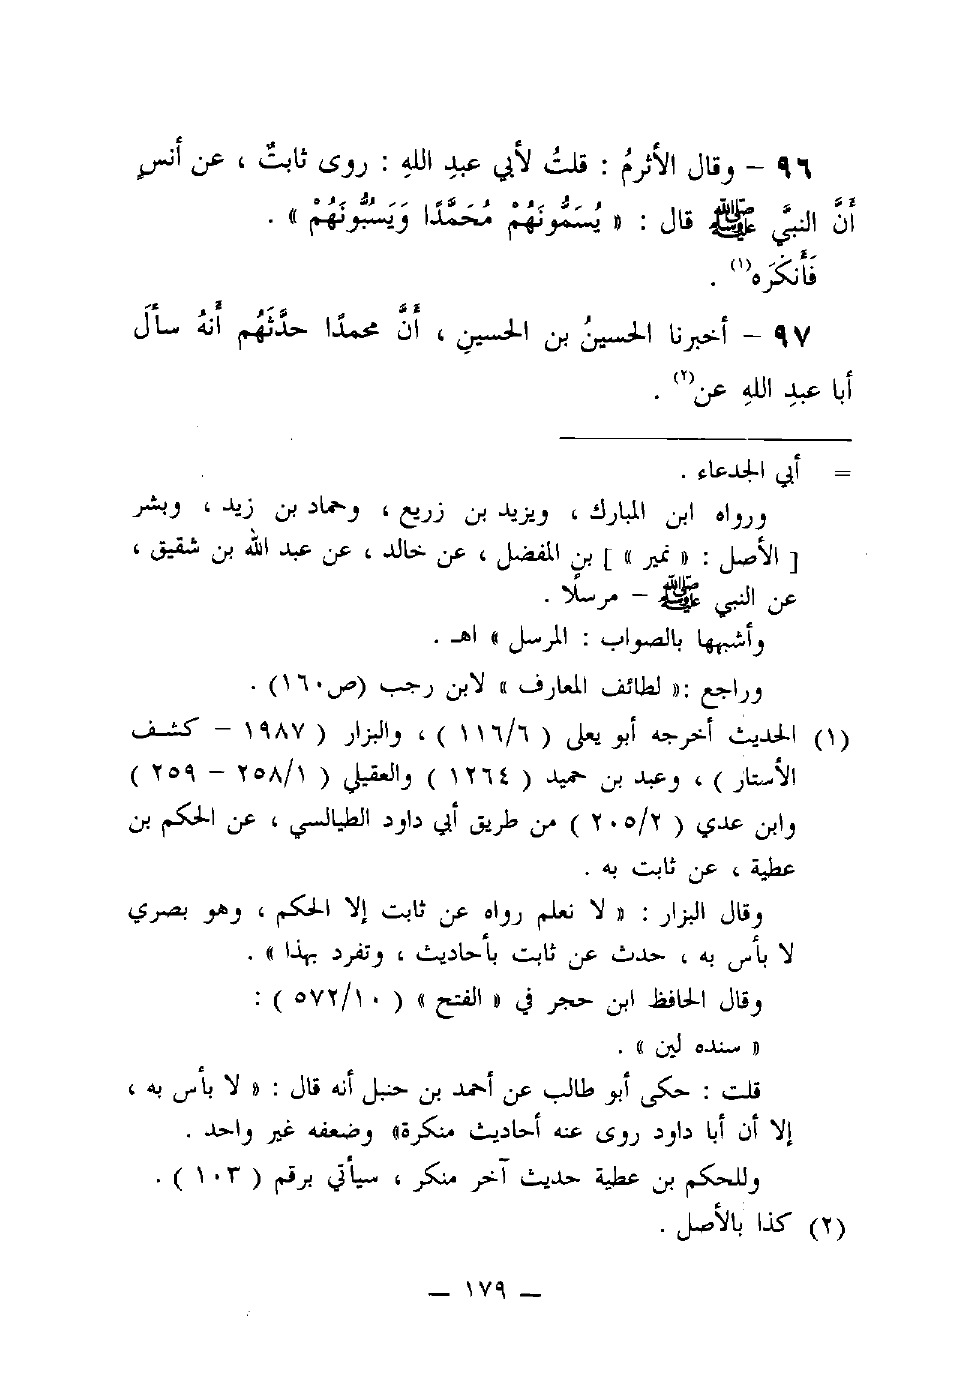 ٩٦ – وقال الأثرمُ : قلتُ لأبي عبدِ اللهِ : روى ثابتٌ ، عن أنسٍ
أَنَّ النبيَّ ﷺ قال : « يُسَمُّونَهُمْ مُحَمَّدًا وَيَسُبُّونَهُمْ » .
فَأَنكَرَه(١) .
٩٧ – أخبرنا الحسينُ بن الحسينِ ، أَنَّ محمدًا حدَّثَهُم أَنهُ سألَ
أبا عبدِ اللهِ عن(٢) .
= أبي الجدعاء .
ورواه ابن المبارك ، ويزيد بن زريع ، وحماد بن زيد ، وبشر
[ الأصل : « نمير » ] بن المفضل ، عن خالد ، عن عبد الله بن شقيق ،
عن النبي ﷺ – مرسلًا .
وأشبهها بالصواب : المرسل » اهـ .
وراجع :« لطائف المعارف » لابن رجب (ص١٦٠) .
(١) الحديث أخرجه أبو يعلى ( ١١٦/٦ ) ، والبزار ( ١٩٨٧ – كشف
الأستار ) ، وعبد بن حميد ( ١٢٦٤ ) والعقيلي ( ٢٥٨/١ – ٢٥٩ )
وابن عدي ( ٢٠٥/٢ ) من طريق أبي داود الطيالسي ، عن الحكم بن
عطية ، عن ثابت به .
وقال البزار : « لا نعلم رواه عن ثابت إلا الحكم ، وهو بصري
لا بأس به ، حدث عن ثابت بأحاديث ، وتفرد بهذا » .
وقال الحافظ ابن حجر في « الفتح » ( ٥٧٢/١٠ ) :
« سنده لين » .
قلت : حكى أبو طالب عن أحمد بن حنبل أنه قال : « لا بأس به ،
إلا أن أبا داود روى عنه أحاديث منكرة» وضعفه غير واحد .
وللحكم بن عطية حديث آخر منكر ، سيأتي برقم ( ١٠٣ ) .
(٢) كذا بالأصل .
— ١٧٩ —